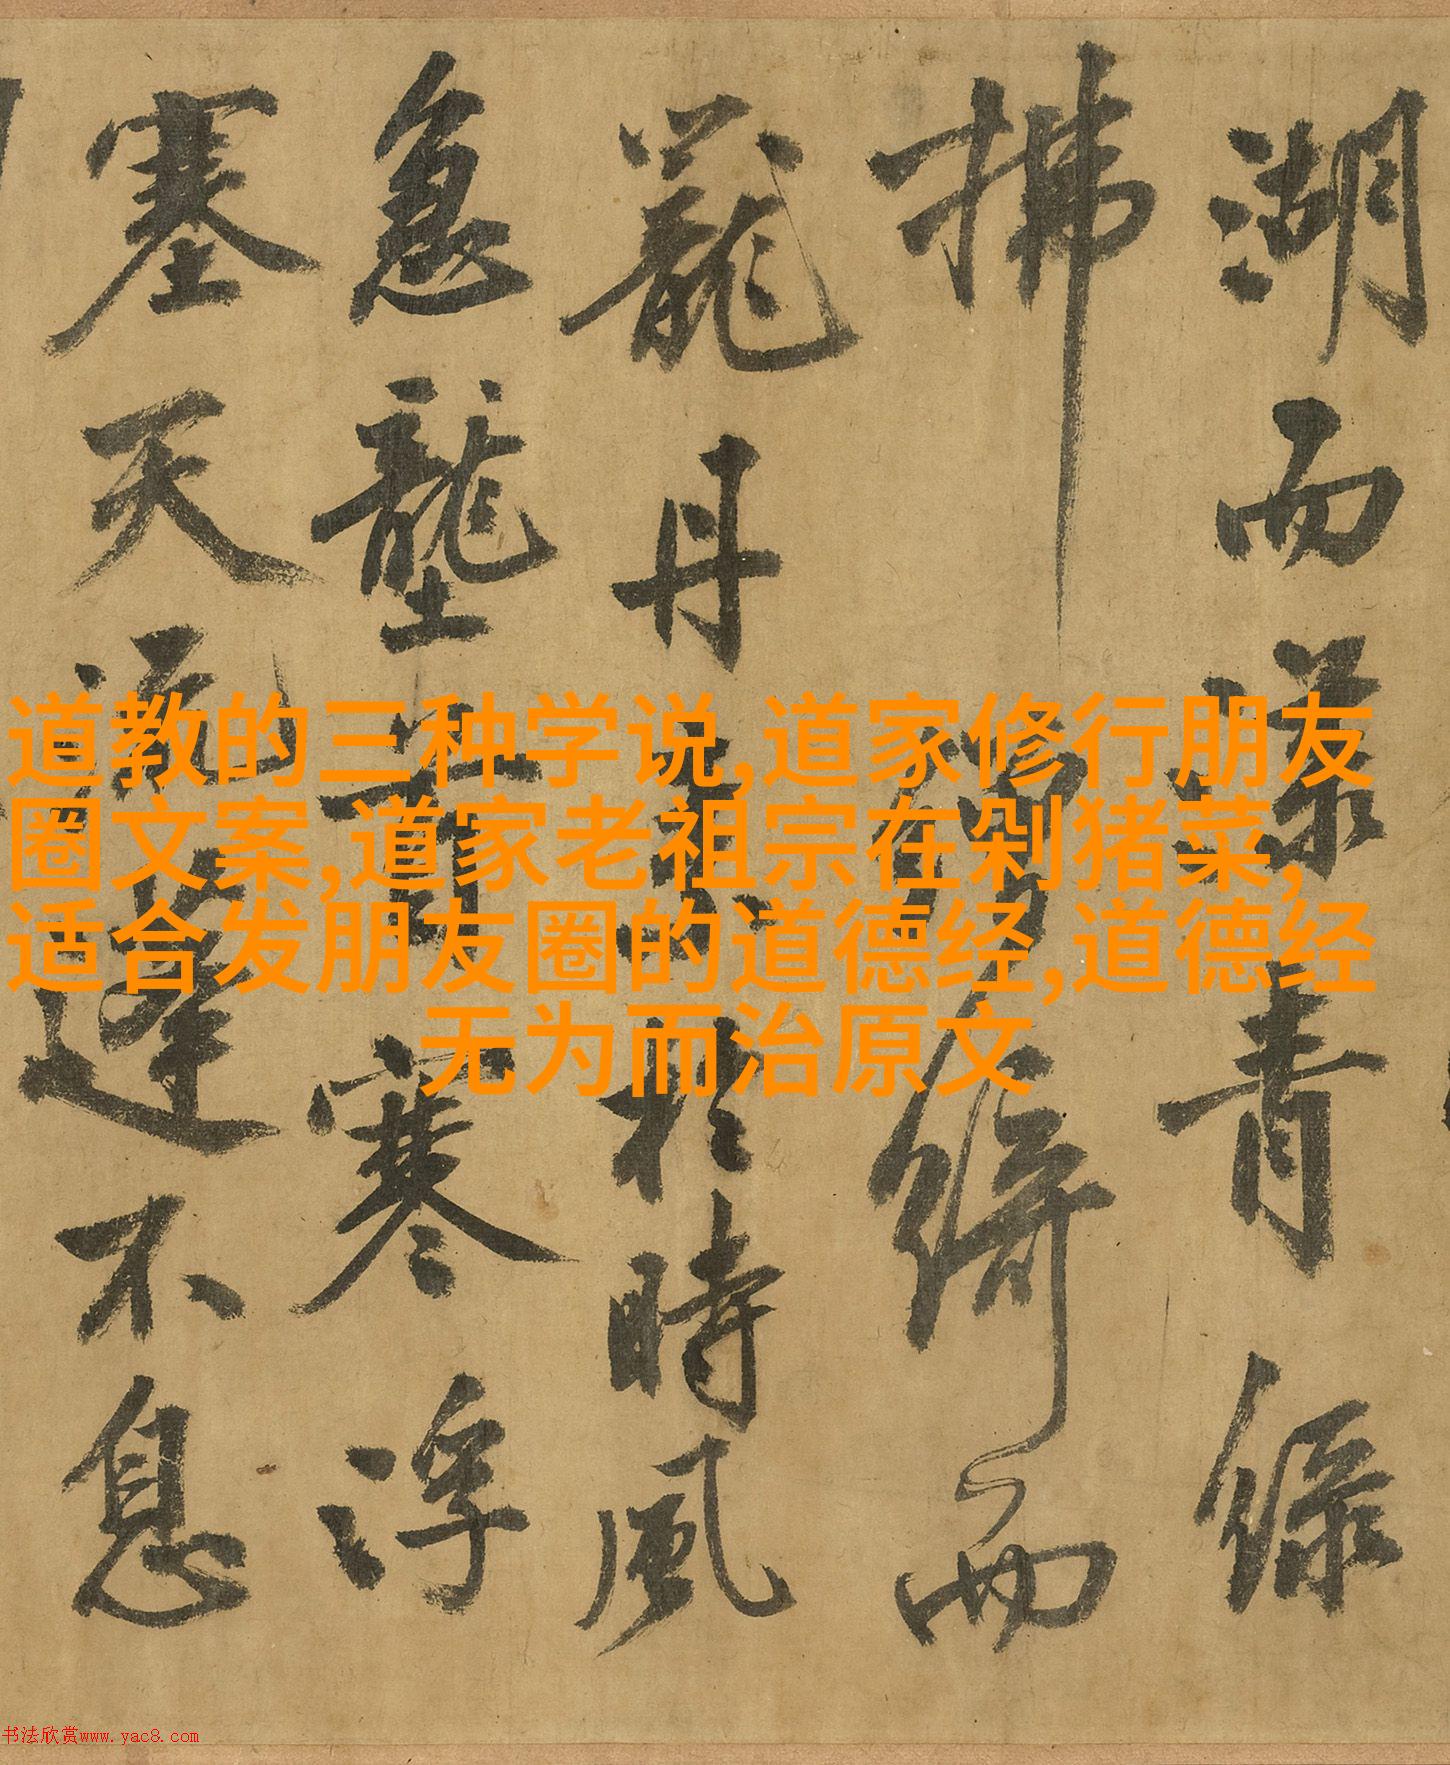 道教的三种学说,道家修行朋友
圈文案,道家老祖宗在剁猪菜,
适合发朋友圈的道德经,道德经
无为而治原文
湖而漾青緑
拂綺而
丹於時風
急壟寒浮
塞天流蓬不息
书法欣赏www.yac8.com